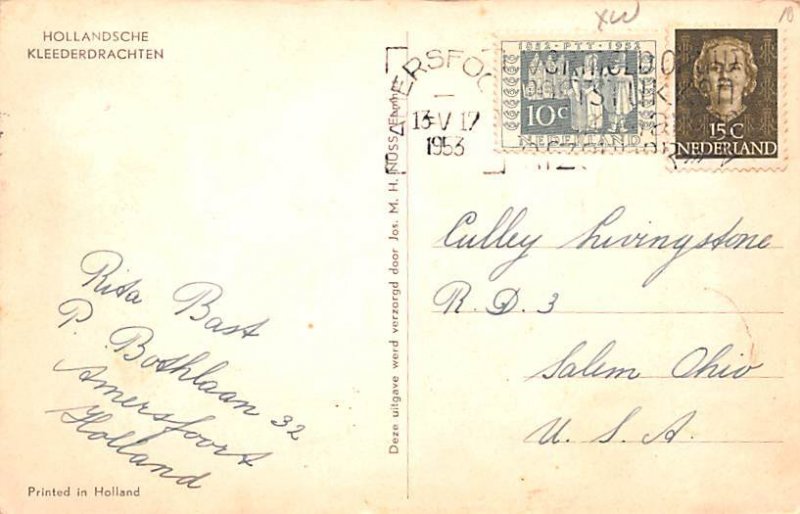 HOLLANDSCHE
KLEEDERDRACHTEN
Rita Bast
P. Bothlaan 32
Amersfoort
Holland
Printed in Holland
Deze uitgave werd verzorgd door Jos. M. H. NUSS,
XW
10
AMERSFOO
13-V 17
1953
1852-PTT-1952
10c
NEDERLAND
15C
NEDERLAND
Culley Livingstone
R. D. 3
Salem Ohio
U. S. A.